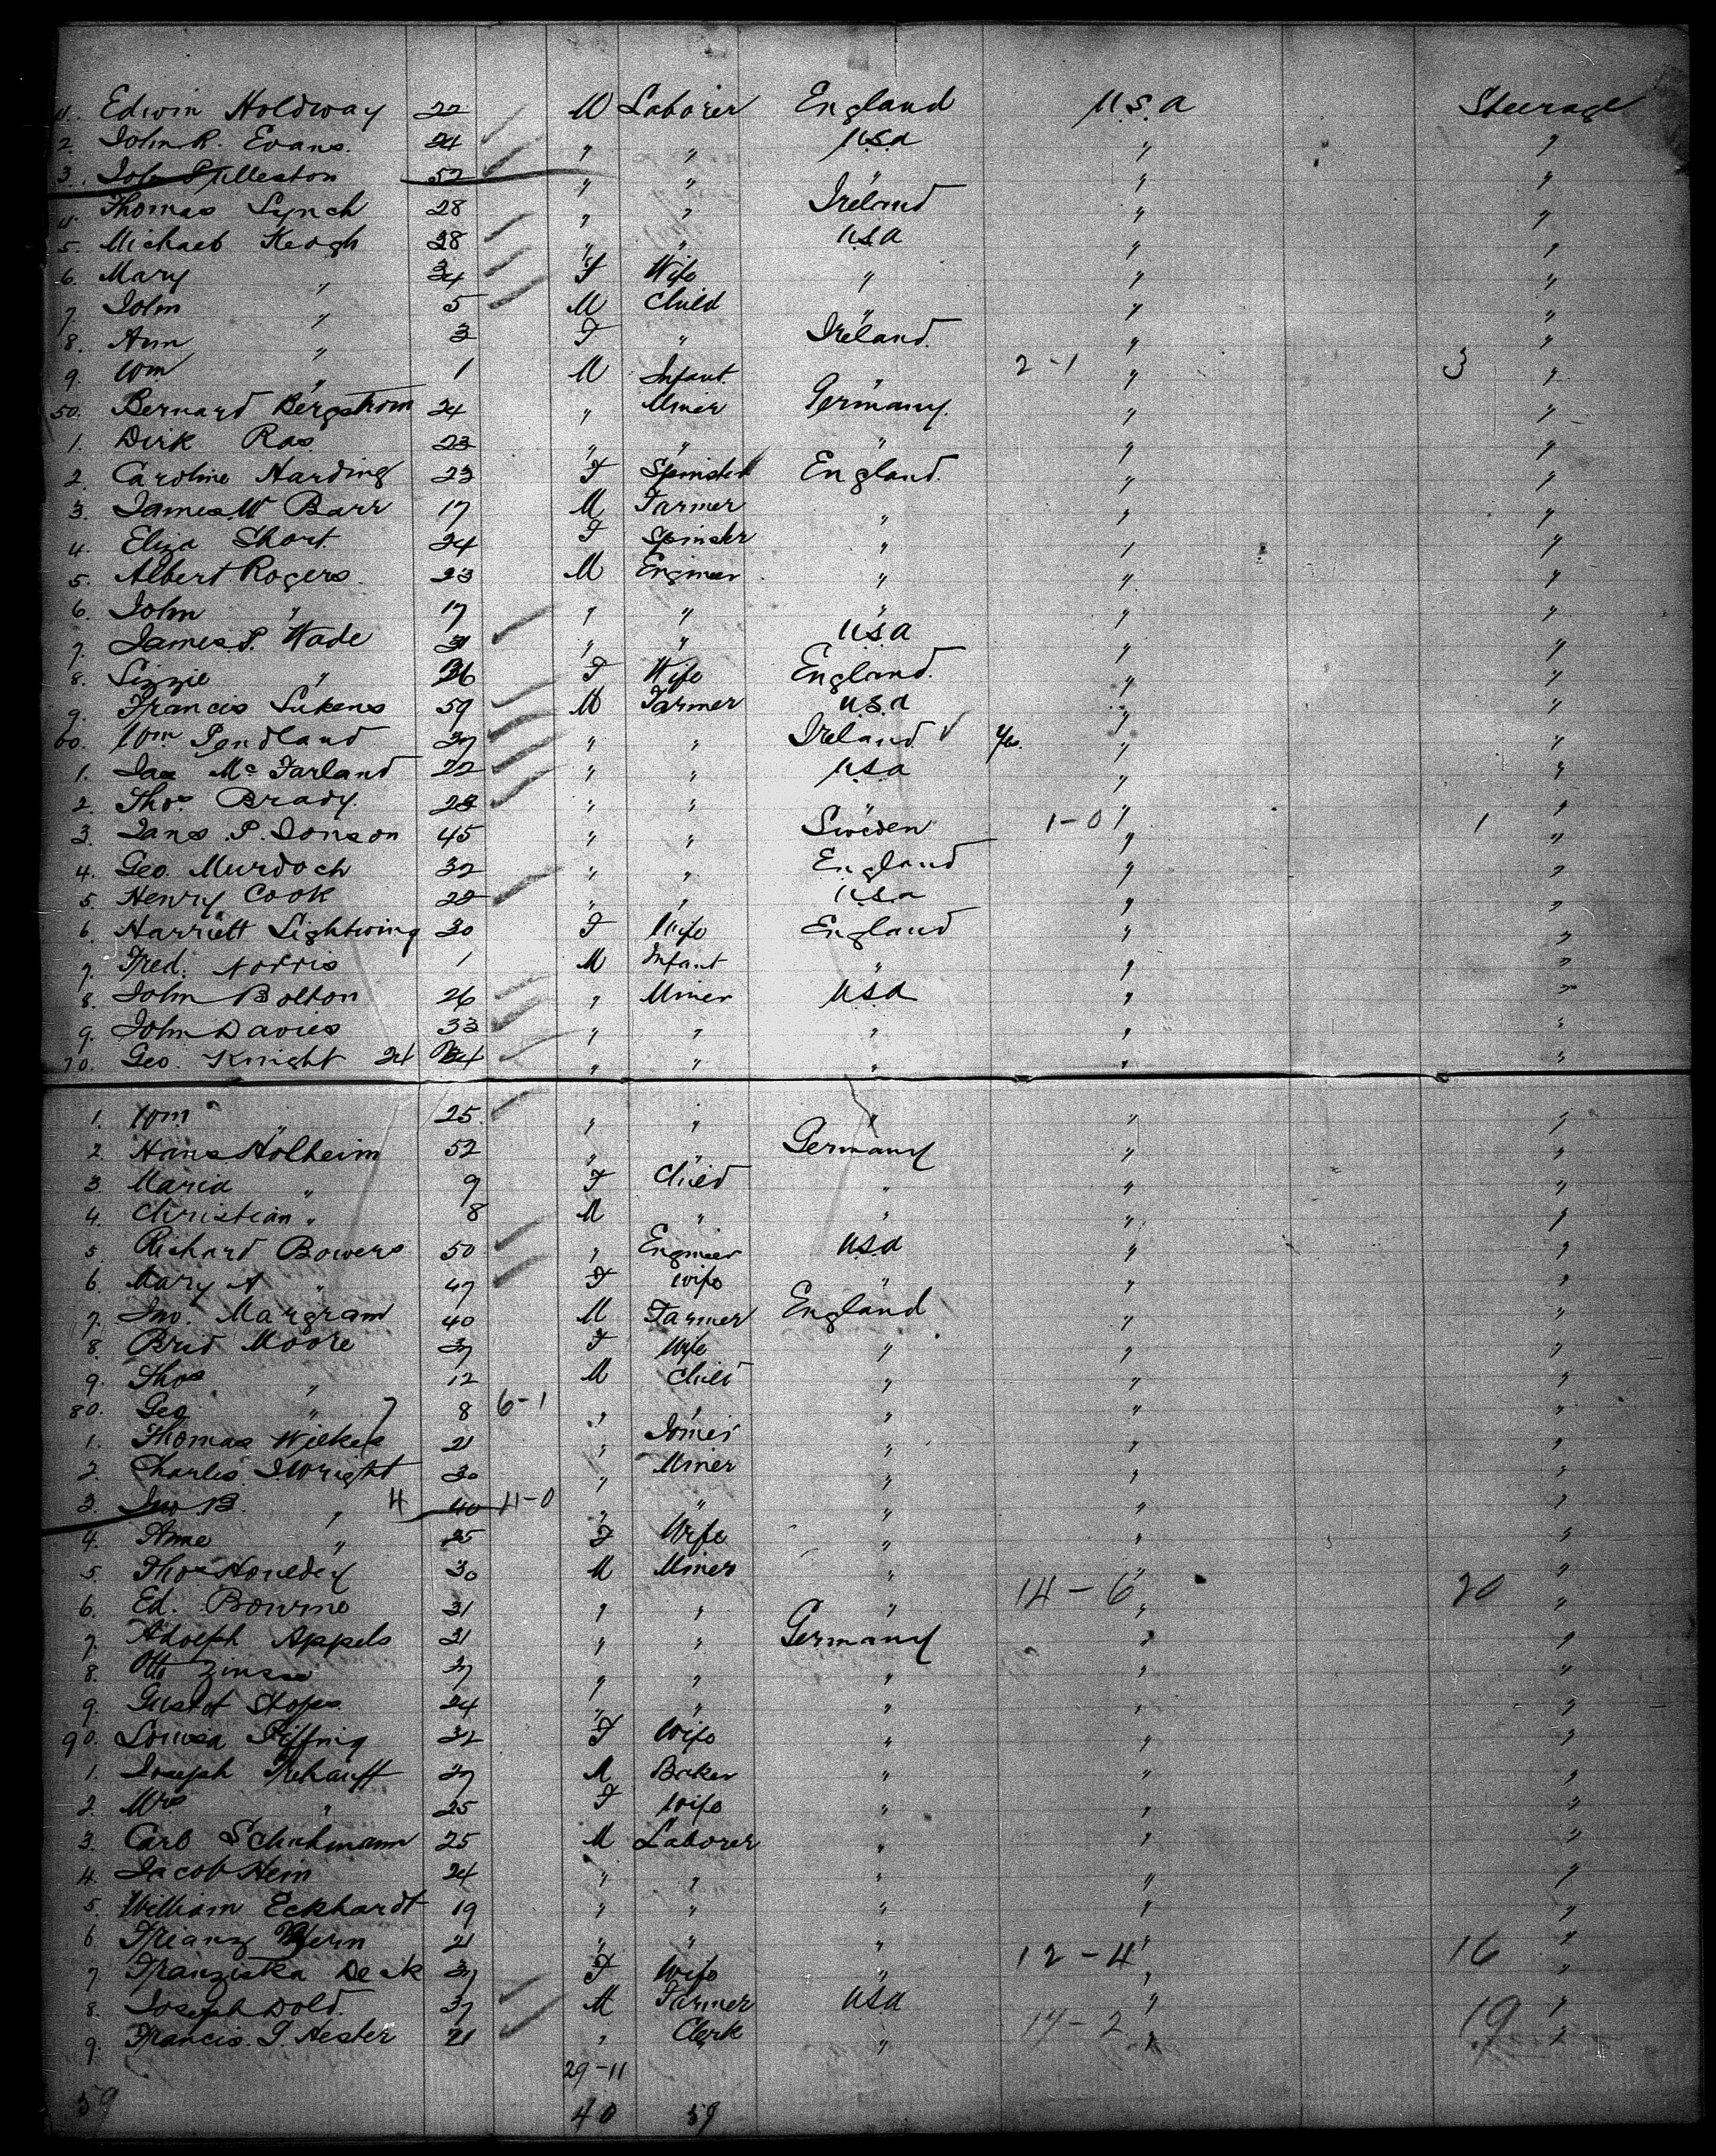 41. Edwin Holdway 22 M Laborer England U.S.A Steerage
2. John R. Evans. 24 " " U.S.A " "
3. John 52 " " " " "
4. Thomas Lynch 28 " " Ireland " "
5. Michael Keogh 38 " " U.S.A " "
6. Mary " 34 F Wife " " "
7. John " 5 M Child " " "
8. Ann " 3 F " Ireland. " "
9. Wm " 1 M Infant. " 2-1 " 3 "
50. Bernard Bergstrom 24 " Miner Germany. " "
1. Dirk Ras. 23 " " " " "
2. Caroline Harding 23 F Spinster England. " "
3. James. W Barr 17 M Farmer " " "
4. Eliza Short. 24 F Spinster " " "
5. Albert Rogers. 23 M Engineer " " "
6. John " 17 " " " " "
7. James. P. Wade 31 " " U.S.A " "
8. Lizzie " 26 F Wife England. " "
9. Francis Lukens 59 M Farmer U.S.A " "
60. Wm Pendland 37 " " Ireland. √ Yes. " "
1. Jas McFarland 22 " " U.S.A " "
2. Thos. Brady. 28 " " " " "
3. Jans. P. Jonson 45 " " Sweden 1-0 " 1 "
4. Geo. Murdoch 32 " " England " "
5. Henry Cook 22 " " U.S.A " "
6. Harriett Lightwing 30 F Wife England " "
7. Fred. Norris 1 M Infant " " "
8. John Bolton 26 " Miner U.S.A " "
9. John Davies 33 " " " " "
70. Geo. Knight 24 24 " " " " "
1. Wm " 25. " " " " "
2. Hans Holheim 52 " " Germany " "
3. Maria " 9 F Child " " "
4. Christian " 8 M " " " "
5. Richard Bowers 50 " Engineer U.S.A " "
6. Mary A " 47 F Wife " " "
7. Jno. Margram 40 M Farmer England " "
8. Brid Moore 37 F Wife " " "
9. Thos " 12 M Child " " "
80. Geo " 7 8 6-1 " " " " "
1. Thomas Wilkes 21 " Joiner " " "
2. Charles J. Wright 30 " Miner " " "
3. Jno. B. " 4 40 11-0 " " " " "
4. Anne " 25 F Wife " " "
5. Thos Houldey 30 M Miner " " "
6. Ed. Bourne 31 " " " 14-6 " 20 "
7. Adolph Appels 21 " " Germany " "
8. Otto Zinsse 27 " " " " "
9. 24 " " " " "
90. Louisa 32 F Wife " " "
1. Joseph 27 M Baker " " "
2. Mrs " 25 F Wife " " "
3. Carl Schuhmann 25 M Laborer " " "
4. Jacob Hein 24 " " " " "
5. William Eckhardt 19 " " " " "
6. 21 " " " 12-4 " 16 "
7. Franziska Deck 37 F Wife " " "
8. Joseph Dold. 37 M Farmer U.S.A " "
9. Francis. S. Hester 21 " Clerk " 17-2 " 19 "
29-11
59 40 59